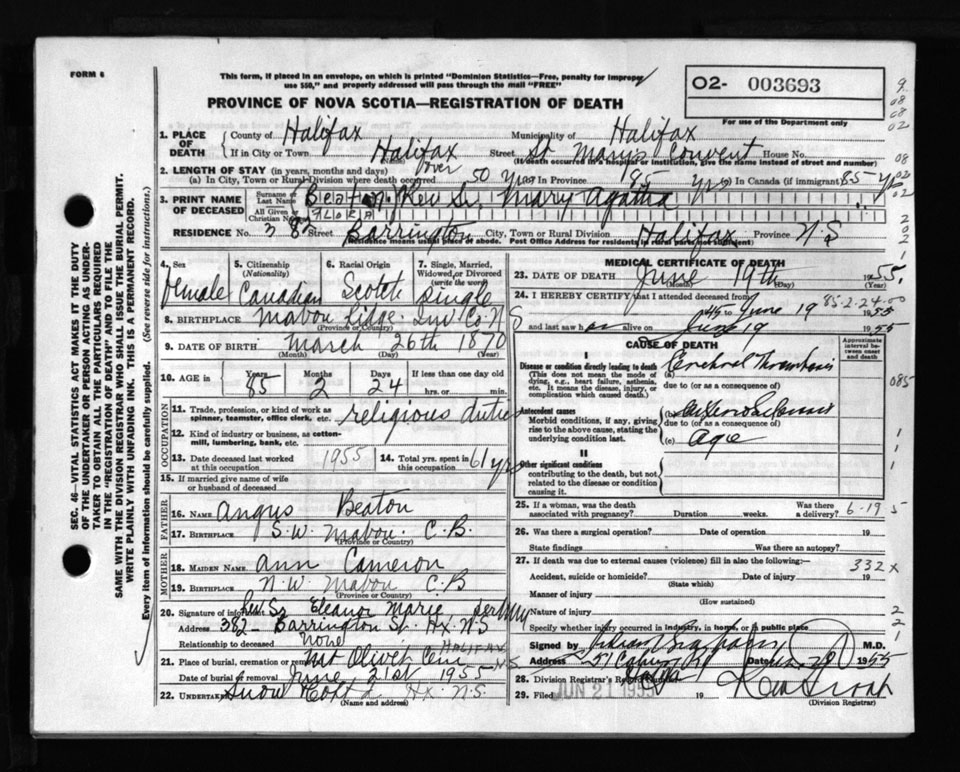 FORM 6
This form, if placed in an envelope, on which is printed "Dominion Statistics—Free, penalty for improper
use $50," and properly addressed will pass through the mail "FREE"
PROVINCE OF NOVA SCOTIA—REGISTRATION OF DEATH
O2- 003693
For use of the Department only
SEC. 46—VITAL STATISTICS ACT MAKES IT THE DUTY
OF THE UNDERTAKER OR PERSON ACTING AS UNDER-
TAKER TO OBTAIN ALL THE PARTICULARS REQUIRED
IN THE "REGISTRATION OF DEATH" AND TO FILE THE
SAME WITH THE DIVISION REGISTRAR WHO SHALL ISSUE THE BURIAL PERMIT.
WRITE PLAINLY WITH UNFADING INK. THIS IS A PERMANENT RECORD.
Every item of information should be carefully supplied. (See reverse side for instructions.)
1. PLACE OF DEATH County of Halifax Municipality of Halifax
If in City or Town Halifax Street St Marys Convent House No.
(If death occurred in hospital or institution, give the name instead of street and number)
2. LENGTH OF STAY (in years, months and days)
(a) In City, Town or Rural Division where death occurred over 50 yrs (b) in Province 85 yrs (c) In Canada (if immigrant) 85 yrs
3. PRINT NAME OF DECEASED Surname or Last Name Beaton Rev Sr. Mary Agatha
All Given or Christian Names FLORA
RESIDENCE No. 382 Street Barrington City, Town or Rural Division Halifax Province N.S
Residence means usual place of abode. Post Office Address for residents in rural parts not sufficient)
4. Sex female
5. Citizenship (Nationality) Canadian
6. Racial Origin Scotch
7. Single, Married, Widowed, or Divorced (write the word) Single
8. BIRTHPLACE Mabou Ridge. Inv Co. N S
(Province or Country)
9. DATE OF BIRTH March 26th 1870
(Month) (Day) (Year)
10. AGE IN Years 85 Months 2 Days 24 If less than one day old hrs. or min.
OCCUPATION
11. Trade, profession, or kind of work as spinner, teamster, office clerk, etc. religious duties
12. Kind of industry or business, as cotton-mill, lumbering, bank, etc.
13. Date deceased last worked at this occupation 1955 14. Total yrs. spent in this occupation 61 yrs
15. If married give name of wife or husband of deceased
FATHER
16. NAME Angus Beaton
17. BIRTHPLACE S.W. Mabou. C.B.
(Province or Country)
MOTHER
18. MAIDEN NAME Ann Cameron
19. BIRTHPLACE N.W. Mabou C.B
(Province or Country)
20. Signature of informant Rev Sr Eleanor Marie
Address 382 Barrington St. Hx. N.S
Relationship to deceased none
21. Place of burial, cremation or removal Mt Olivet Cem HALIFAX N S
Date of burial or removal June 21st 1955
22. UNDERTAKER Snow Co Ltd Hx. N.S.
(Name and address)
MEDICAL CERTIFICATE OF DEATH
23. DATE OF DEATH June 19th 1955.
(Month) (Day)
24. I HEREBY CERTIFY that I attended deceased from
85-2-24-00
to June 19 1955
and last saw h alive on June 19 1955
CAUSE OF DEATH
Approximate interval between onset and death
I
Disease or condition directly leading to death
(This does not mean the mode of dying, e.g., heart failure, asthenia, etc. It means the disease, injury, or complication which caused death.)
(a) Cerebral Thrombosis
due to (or as a consequence of)
Antecedent causes
Morbid conditions, if any, giving rise to the above cause, stating the underlying condition last.
(b) Arteriosclerosis
due to (or as a consequence of)
(c) Age
II
Other significant conditions contributing to the death, but not related to the disease or condition causing it.
25. If a woman, was the death associated with pregnancy? Duration weeks. Was there a delivery? 6-19 5
26. Was there a surgical operation? Date of operation 19
State findings Was there an autopsy?
27. If death was due to external causes (violence) fill in also the following:- 332 x
Accident, suicide or homicide? Date of injury 19
(State which)
Manner of injury
(How sustained)
Nature of injury
Specify whether injury occurred in industry, in home, or in public place
Signed by M.D.
Address Date 1955
28. Division Registrar's Record Number
29. Filed JUN 21 1955 19
(Division Registrar)
085